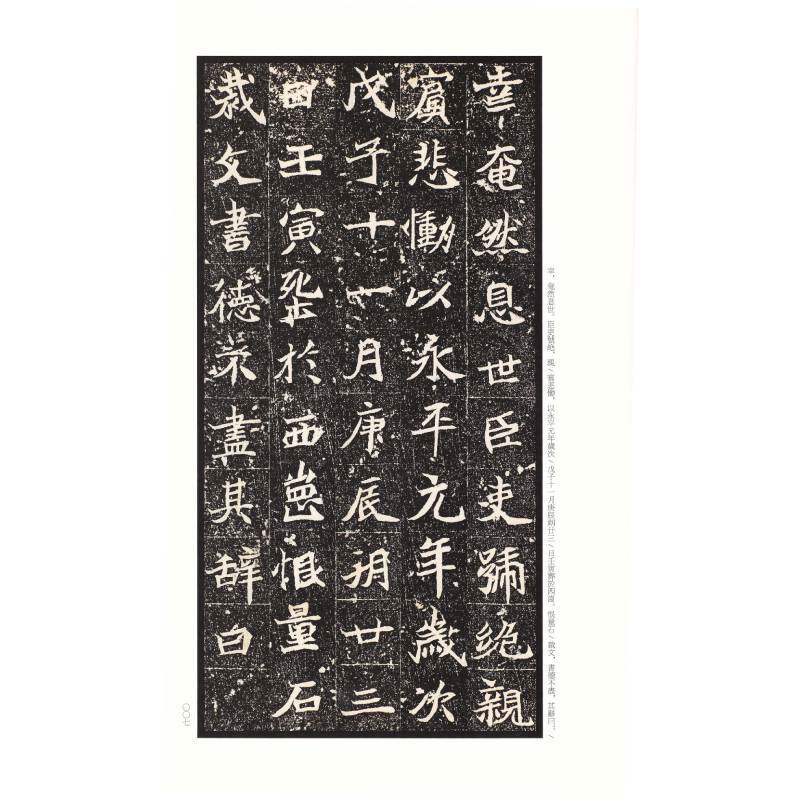 幸奄然息世臣吏號絕親
賓悲慟以永平元年歲次
戊子十一月庚辰朔廿三
日壬寅葬於西崗恨量石
裁文書德不盡其辭曰
幸，奄然息世。臣吏號絕，親／賓悲慟，以永平元年歲次／戊子十一月庚辰朔廿三／日壬寅葬於西崗，恨量石／裁文，書德不盡，其辭曰：／
〇〇七